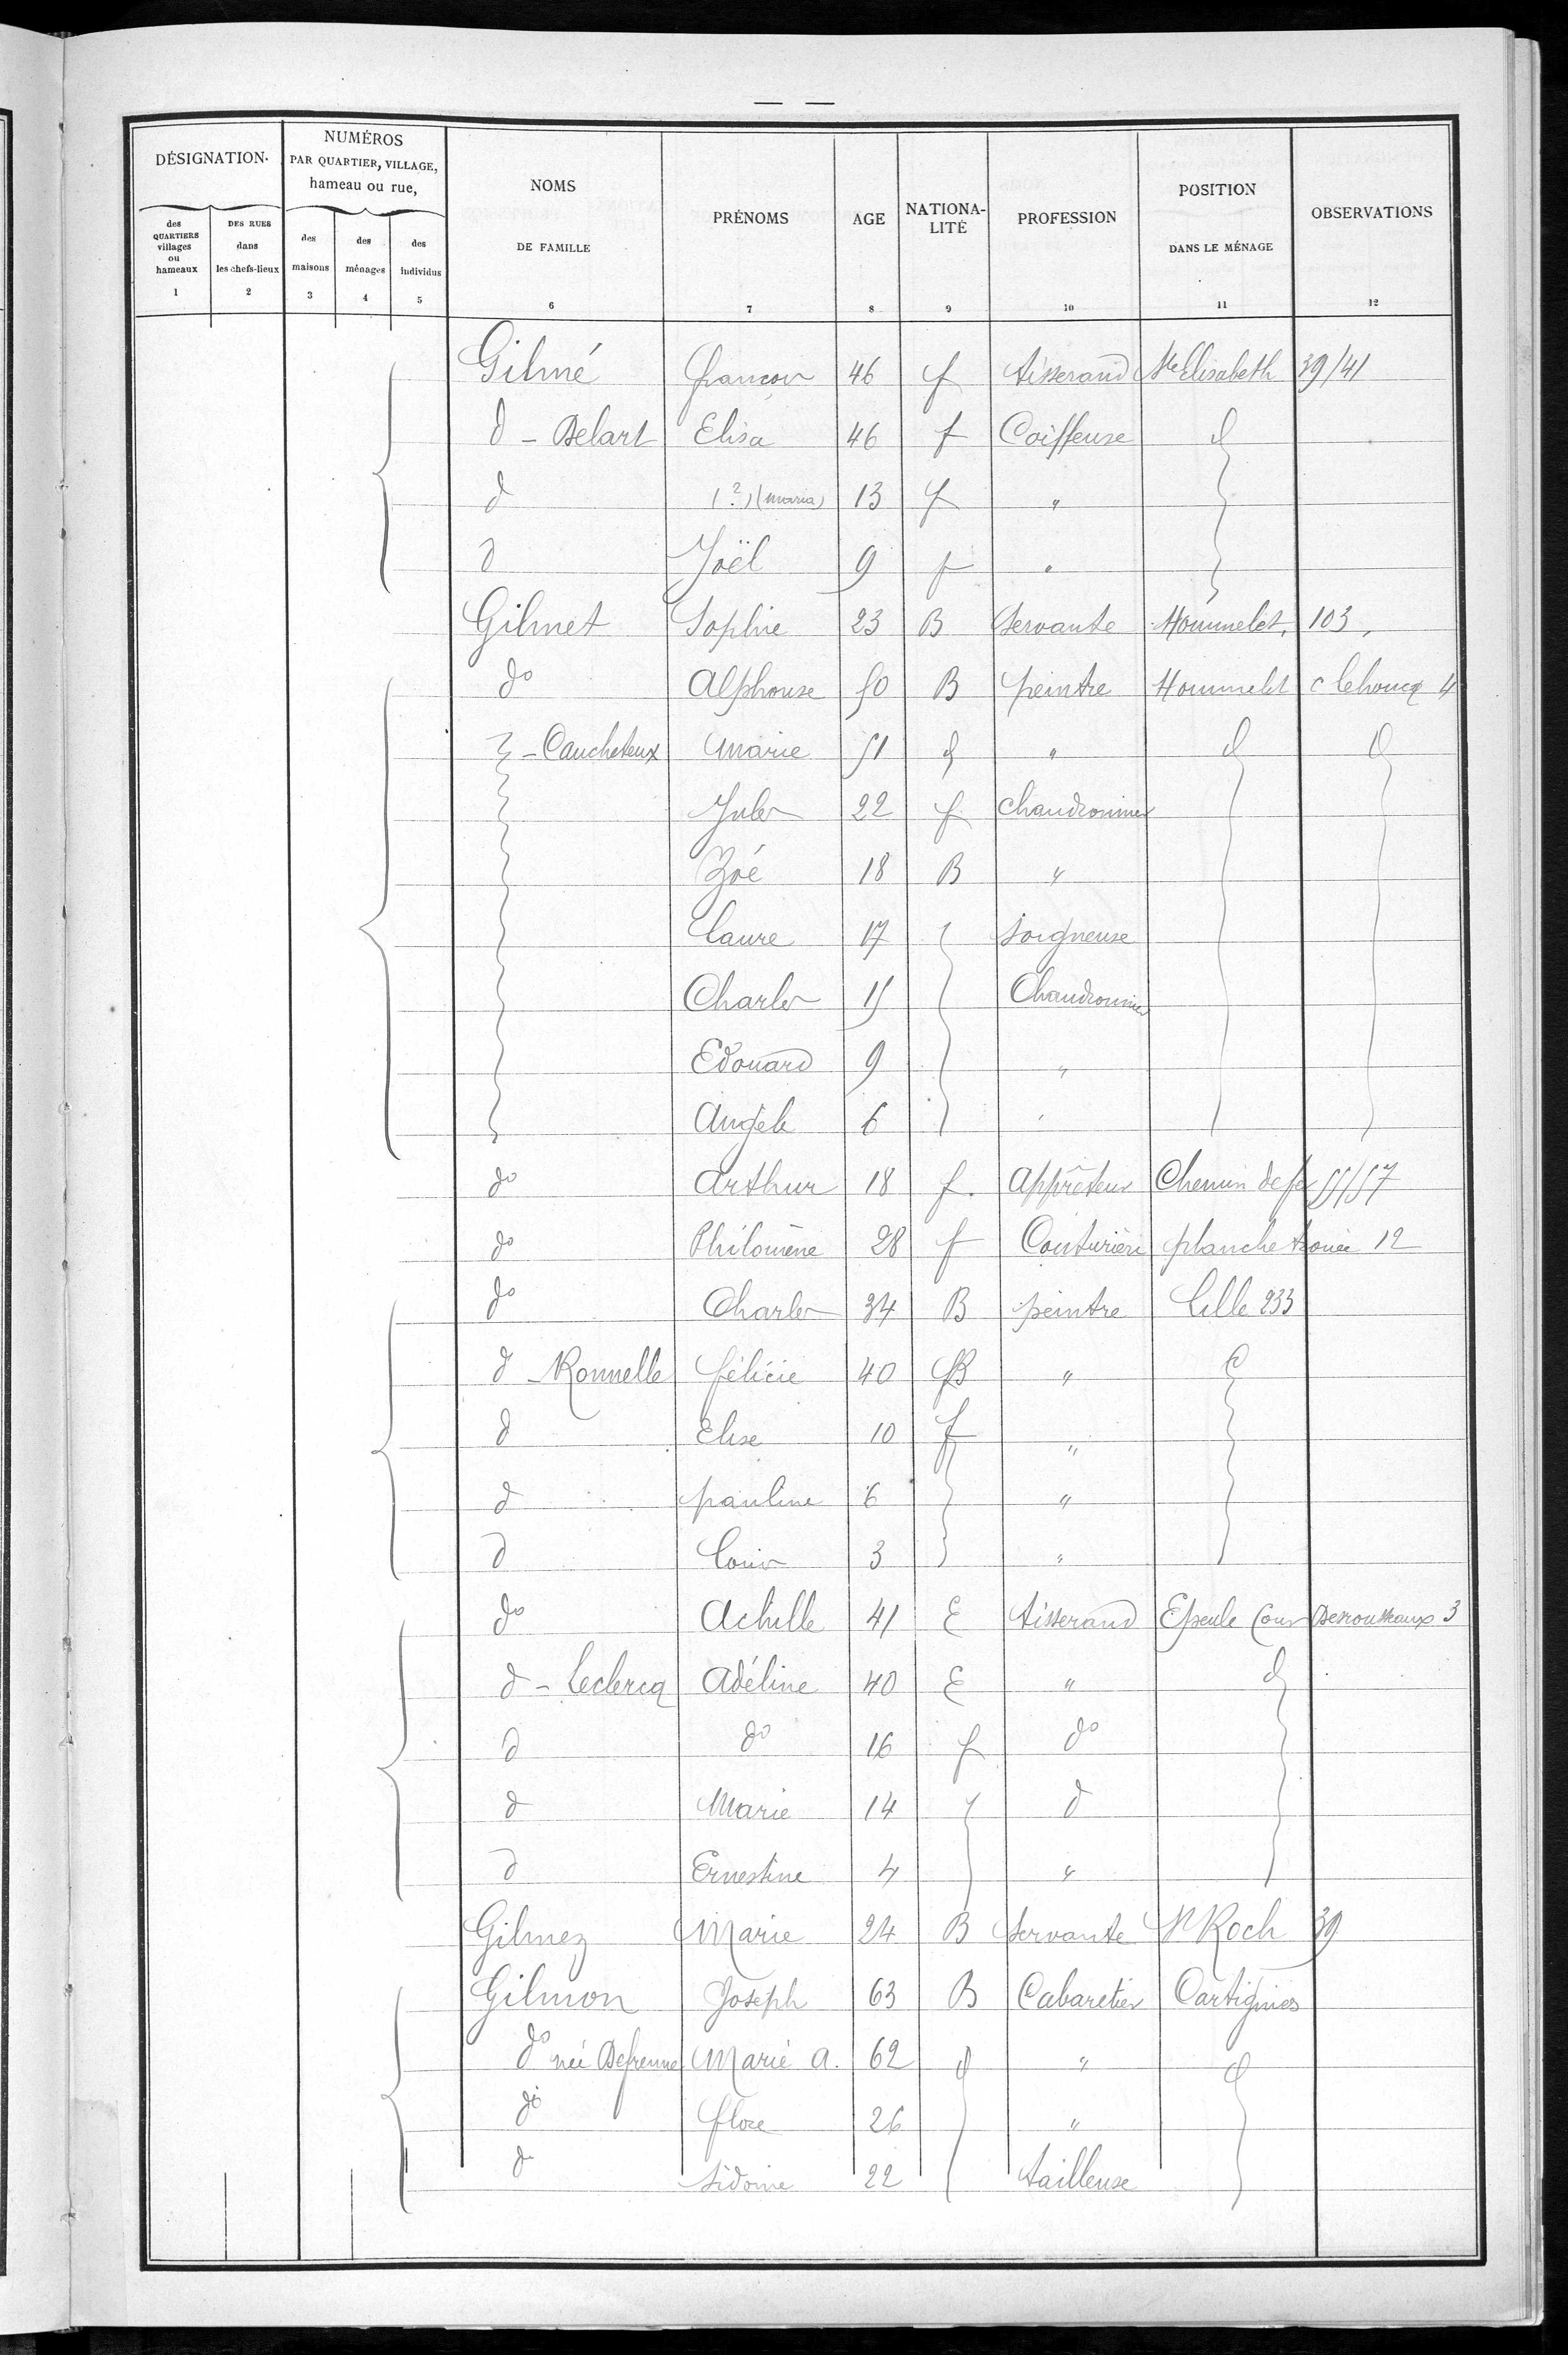 — —
DÉSIGNATION.
NUMÉROS
PAR QUARTIER, VILLAGE,
hameau ou rue,
des QUARTIERS villages ou hameaux
DES RUES dans les chefs-lieux
des maisons
des ménages
des individus
NOMS DE FAMILLE
PRÉNOMS
AGE
NATIONA-LITÉ
PROFESSION
POSITION DANS LE MÉNAGE
OBSERVATIONS
1 2 3 4 5 6 7 8 9 10 11 12
Gilmé françois 46 f tisserand Ste Elisabeth 39/41
d - Delart Elisa 46 f Coiffeuse d
d (?) (maria) 13 f "
d Joël 9 f "
Gilmet Sophie 23 B servante Hommelet, 103,
do Alphonse 50 B peintre Hommelet c Lehoucq 4
- Caucheteux Marie 51 d " d d
Jules 22 f chaudronnier
Zoé 18 B "
Laure 17 soigneuse
Charles 15 Chaudronnier
Edouard 9 "
Angèle 6 "
do Arthur 18 f. Apprêteur Chemin de fer 55/57
do Philomène 28 f Couturière planche trouée 12
do Charles 34 B peintre Lille 233
d - Ronnelle félicie 40 B " d
d Elise 10 f "
d pauline 6 "
d Louis 3 "
do Achille 41 E tisserand Epeule Cour Desrousseaux 3
d - Leclercq Adéline 40 E " d
d do 16 f do
d Marie 14 d
d Ernestine 4 "
Gilmez Marie 24 B servante St Roch 39
Gilmon Joseph 63 B Cabaretier Cartignies
do née Defrenne Marie A. 62 d " d
do flore 26 "
d sidonie 22 tailleuse